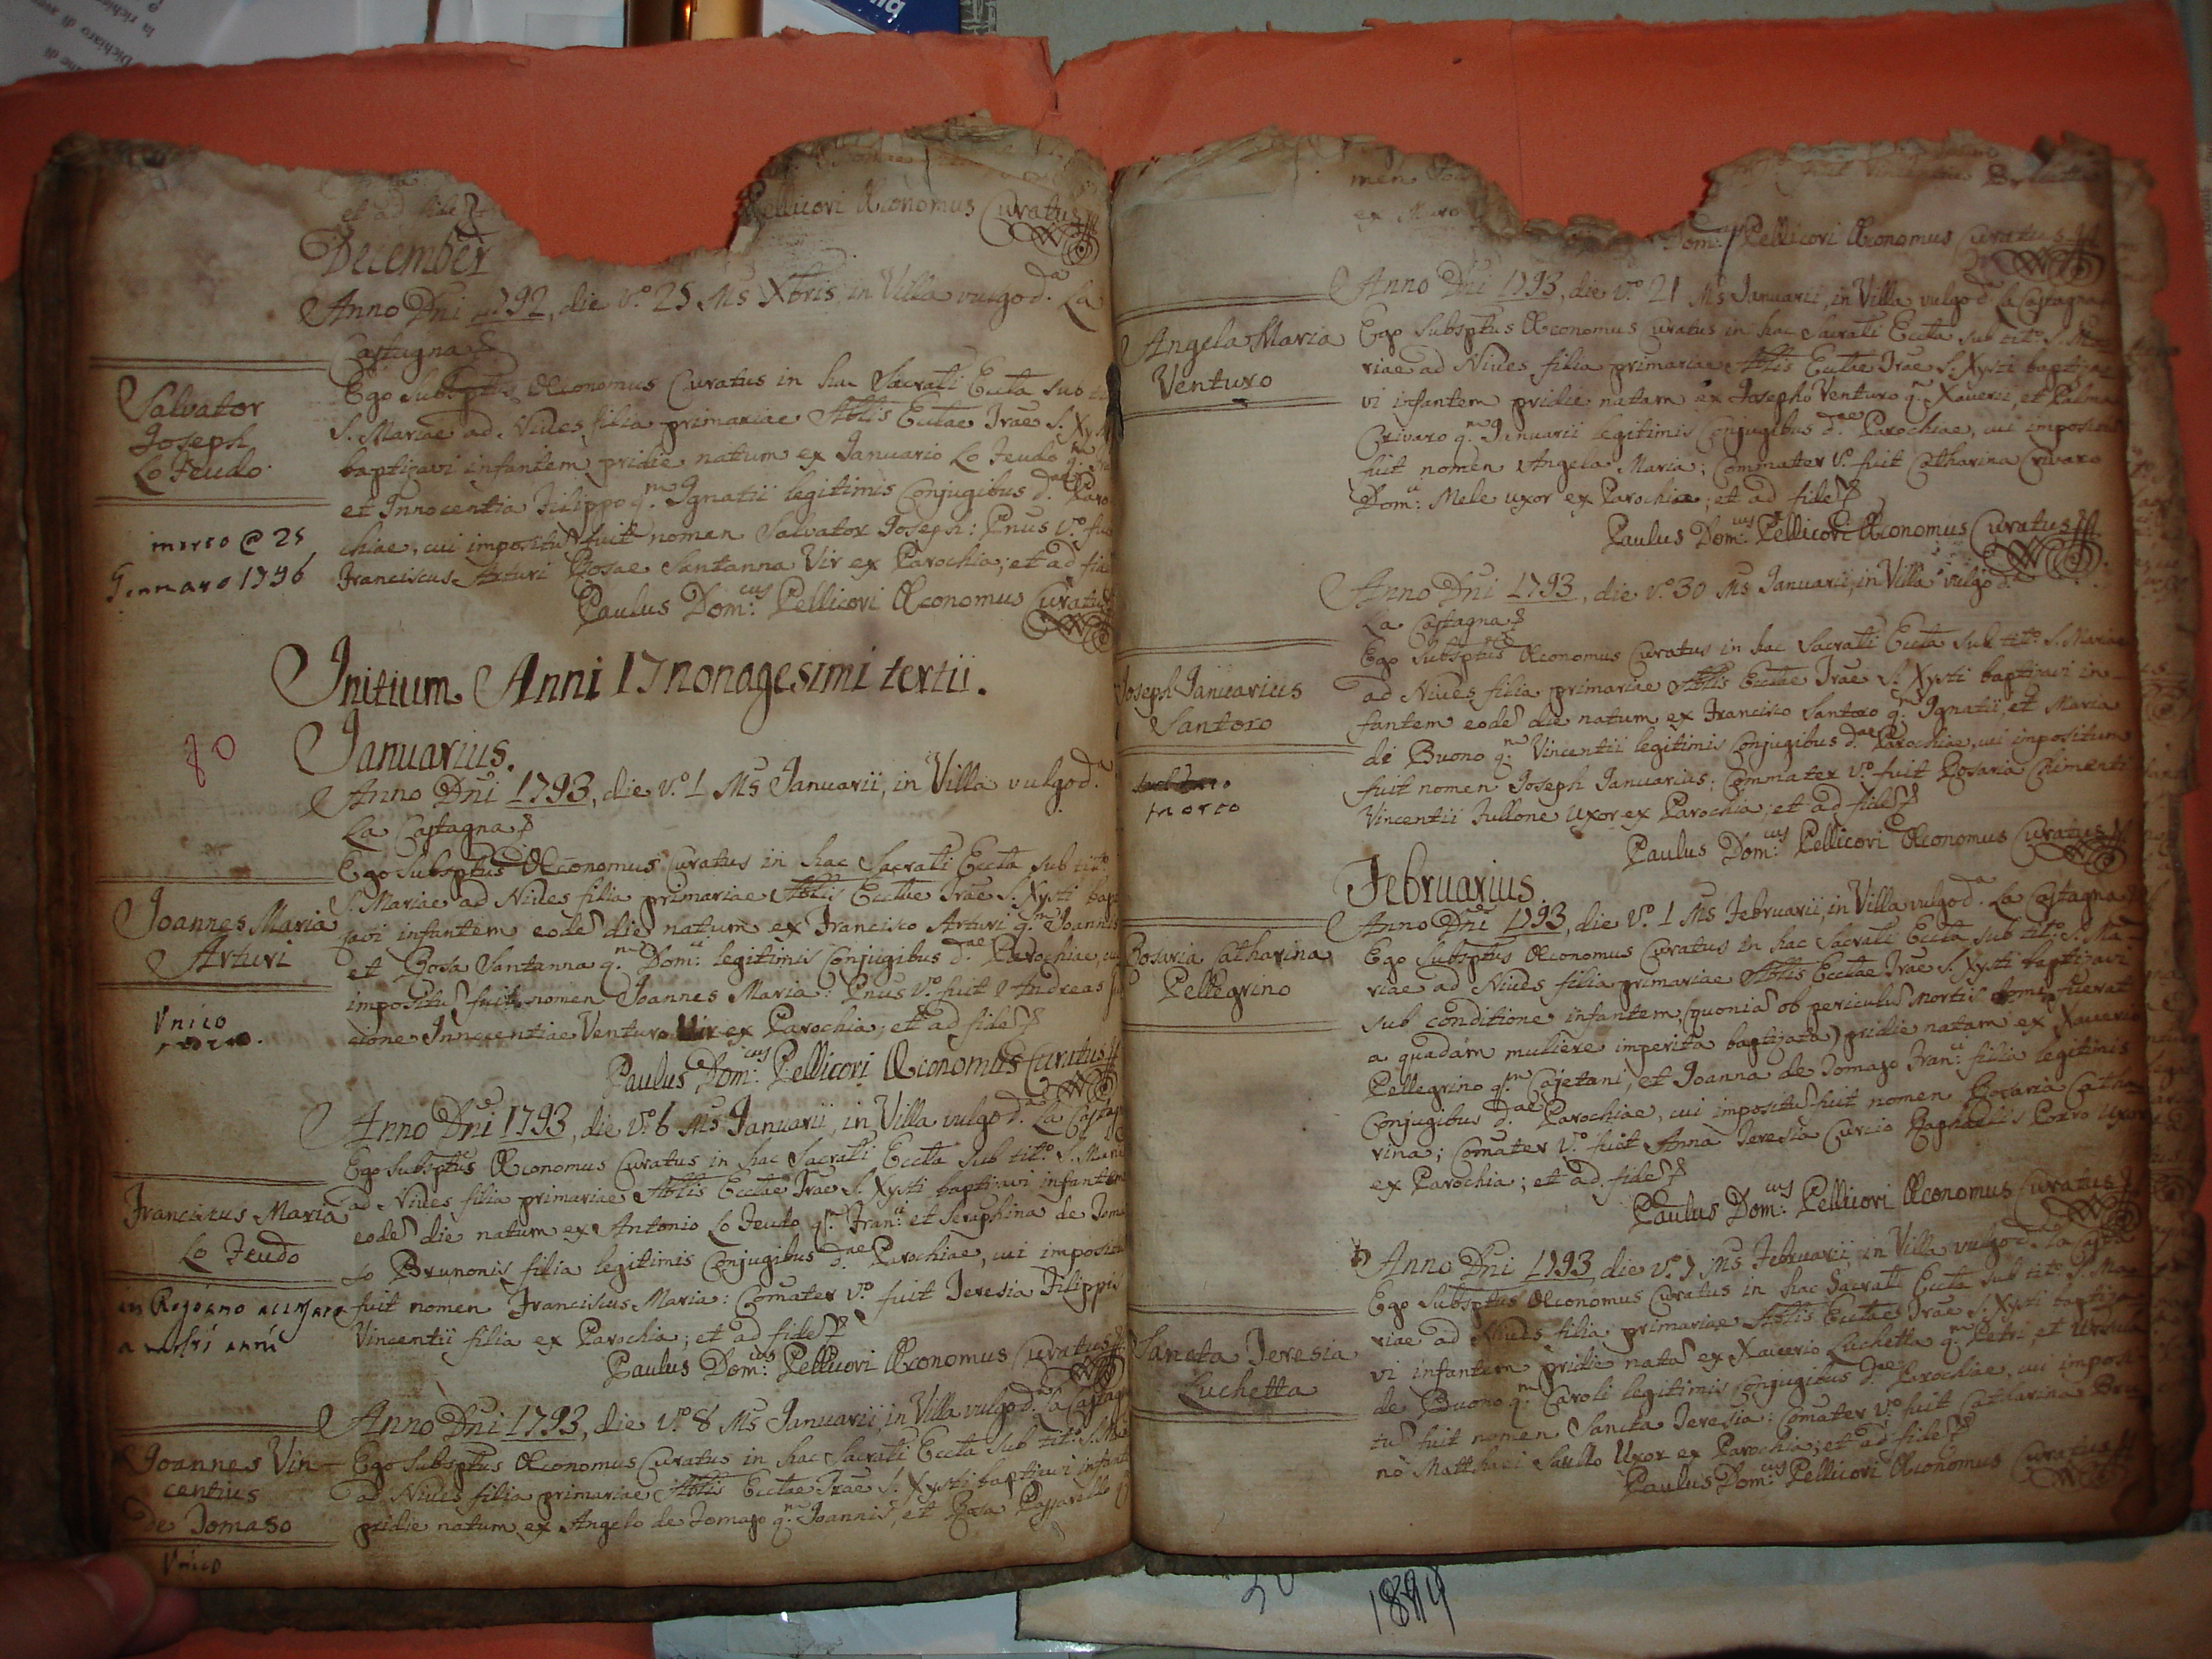 et ad fide
Pellicori Œconomus Curatus
December
Anno Dni 1792, die v.º 25 Ms Xbris in Villa vulgo d.ª La
Castagna
Salvator
Joseph
Lo Feudo
Ego Subsptus Œconomus Curatus in hac Sacrali Eccta sub
S. Mariae ad Nives filia primariae Abtis Ecctae Trae S. Xy
baptizavi infantem pridie natum ex Januario Lo Feudo q.m
et Innocentia Filippo q.m Ignatii legitimis Conjugibus d.ae Paro
chiae, cui impositu fuit nomen Salvator Joseph: Pnus v.º fu
Franciscus Arturi Rosae Santanna Vir ex Parochia; et ad fid
Paulus Dom:cus Pellicori Œconomus Curatus
morto @ 25
Gennaro 1796
Initium Anni 17nonagesimi tertii.
80
Januarius.
Anno Dni 1793, die v.º 1 Ms Januarii, in Villa vulgo d.ª
La Castagna
Joannes Maria
Arturi
Ego Subsptus Œconomus Curatus in hac Sacrali Eccta sub tit.º
S. Mariae ad Nives filia primariae Abtis Ecctae Trae S. Xysti bapt
zavi infantem eode die natum ex Francisco Arturi q.m Joannis
et Rosa Santanna q.m Dom:ci legitimis Conjugibus d.ae Parochiae, cui
impositu fuit nomen Joannes Maria: Pnus v.º fuit Andreas
cione Innocentiae Venturo Vir ex Parochia; et ad fide
Paulus Dom:cus Pellicori Œconomus Curatus
Unico
Anno Dni 1793, die v.º 6 Ms Januarii, in Villa vulgo d.ª La Castag
Franciscus Maria
Lo Feudo
Ego Subsptus Œconomus Curatus in hac Sacrali Eccta sub tit.º S. Mari
ad Nives filia primariae Abtis Ecctae Trae S. Xysti baptizavi infantem
eode die natum ex Antonio Lo Feudo q.m Fran:ci et Seraphina de Toma
so Brunonis filia legitimis Conjugibus d.ae Parochiae, cui impositu
fuit nomen Franciscus Maria: Comater v.º fuit Teresia Filippis
Vincentii filia ex Parochia; et ad fide
Paulus Dom:cus Pellicori Œconomus Curatus
in Rogiano
anni
Anno Dni 1793, die v.º 8 Ms Januarii, in Villa vulgo d.ª La Castag
Joannes Vin
centius
de Tomaso
Ego Subsptus Œconomus Curatus in hac Sacrali Eccta sub tit.º S. Ma
ad Nives filia primariae Abtis Ecctae Trae S. Xysti baptizavi infante
pridie natum ex Angelo de Tomaso q.m Joannis, et Rosa Passarello
Unico
men
ex
Dom: Pellicori Œconomus Curatus
Anno Dni 1793, die v.º 21 Ms Januarii, in Villa vulgo d.ª La Castagna
Angela Maria
Venturo
Ego Subsptus Œconomus Curatus in hac Sacrali Eccta sub tit.º S. Ma
riae ad Nives filia primariae Abtis Ecctae Trae S. Xysti baptiza
vi infantem pridie natam ex Josepho Venturo q.m Xaverii, et Palma
Crivaro q.m Januarii legitimis Conjugibus d.ae Parochiae, cui impositu
fuit nomen Angela Maria; Commater v.º fuit Catharina Crivaro
Dom:ci Mele uxor ex Parochia; et ad fide
Paulus Dom:cus Pellicori Œconomus Curatus
Anno Dni 1793, die v.º 30 Ms Januarii, in Villa vulgo d.ª
La Castagna
Joseph Januarius
Santoro
Ego Subsptus Œconomus Curatus in hac Sacrali Eccta sub tit.º S. Mariae
ad Nives filia primariae Abtis Ecctae Trae S. Xysti baptizavi in
fantem eode die natum ex Francisco Santoro q.m Ignatii, et Maria
de Buono q.m Vincentii legitimis Conjugibus d.ae Parochiae, cui impositum
fuit nomen Joseph Januarius; Commater v.º fuit Rosaria Chimenti
Vincentii Tullone Uxor ex Parochia; et ad fide
Paulus Dom:cus Pellicori Œconomus Curatus
morto
Februarius
Anno Dni 1793, die v.º 1 Ms Februarii, in Villa vulgo d.ª La Castagna
Rosaria Catharina
Pellegrino
Ego Subsptus Œconomus Curatus in hac Sacrali Eccta sub tit.º S. Ma
riae ad Nives filia primariae Abtis Ecctae Trae S. Xysti baptizavi
sub conditione infantem, (quonia ob periculu Mortis domi fuerat
a quadam muliere imperita baptizata) pridie natam ex Xaverio
Pellegrino q.m Cajetani, et Joanna de Tomaso Fran:ci filia legitimis
Conjugibus d.ae Parochiae, cui impositu fuit nomen Rosaria Catha
rina; Comater v.º fuit Anna Teresia Curcio Raphaelis Porro Uxor
ex Parochia; et ad fide
Paulus Dom:cus Pellicori Œconomus Curatus
Anno Dni 1793 die v.º 7 Ms Februarii, in Villa vulgo d.ª La Casta
Sancta Teresia
Luchetta
Ego Subsptus Œconomus Curatus in hac Sacrali Eccta sub tit.º S. Ma
riae ad Nives filia primariae Abtis Ecctae Trae S. Xysti baptiza
vi infantem pridie nata ex Xaverio Luchetta q.m Petri, et Ursula
de Buono q.m Caroli legitimis Conjugibus d.ae Parochiae, cui imposi
tu fuit nomen Sancta Teresia: Comater v.º fuit Catharina Bru
no Matthaei Saullo Uxor ex Parochia; et ad fide
Paulus Dom:cus Pellicori Œconomus Curatus